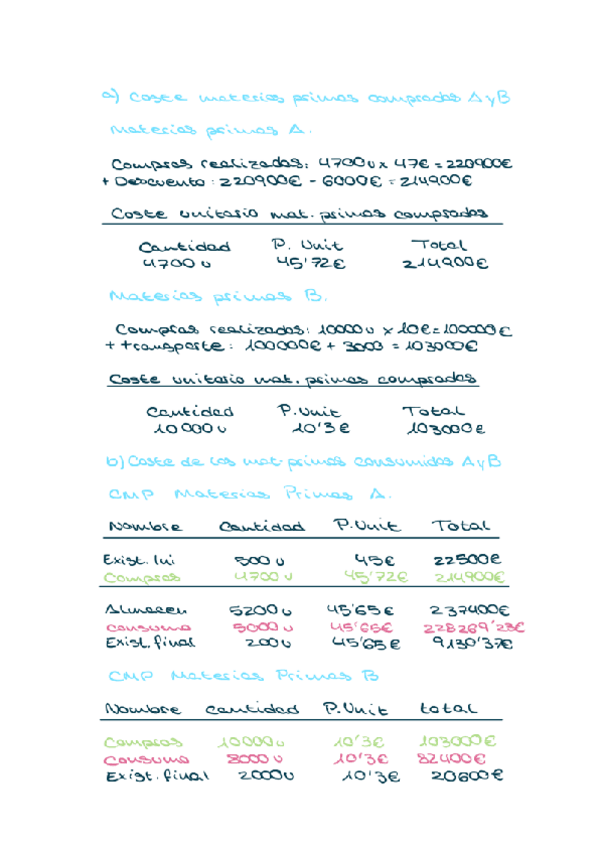 a) Coste materias primas compradas A y B
Materias primas A.
Compras realizadas: 4700u x 47€ = 220900€
+ Descuento: 220900€ - 6000€ = 214900€
Coste unitario mat. primas compradas
Cantidad P. Unit Total
4700 u 45'72€ 214900€
Materias primas B.
Compras realizadas: 10000u x 10€ = 100000€
+ transporte: 100000€ + 3000 = 103000€
Coste unitario mat. primas compradas
Cantidad P.Unit Total
10000u 10'3€ 103000€
b) Coste de las mat. primas consumidas A y B
CMP Materias Primas A.
Nombre Cantidad P.Unit Total
Exist. Ini 500 u 45€ 22500€
Compras 4700 u 45'72€ 214900€
Almacen 5200 u 45'65€ 237400€
Consumo 5000 u 45'65€ 228269'23€
Exist. final 200 u 45'65€ 9130'37€
CMP Materias Primas B
Nombre Cantidad P.Unit total
Compras 10000u 10'3€ 103000€
Consumo 8000 u 10'3€ 82400€
Exist. final 2000 u 10'3€ 20600€